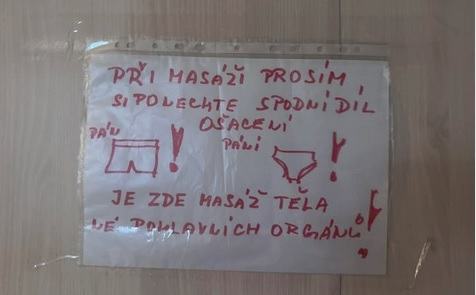 PŘI MASÁŽI PROSÍM
SI PONECHTE SPODNÍ DÍL
OŠACENÍ
PÁN ! PÁNÍ !
JE ZDE MASÁŽ TĚLA
NÉ POHLAVNÍCH ORGÁNŮ !